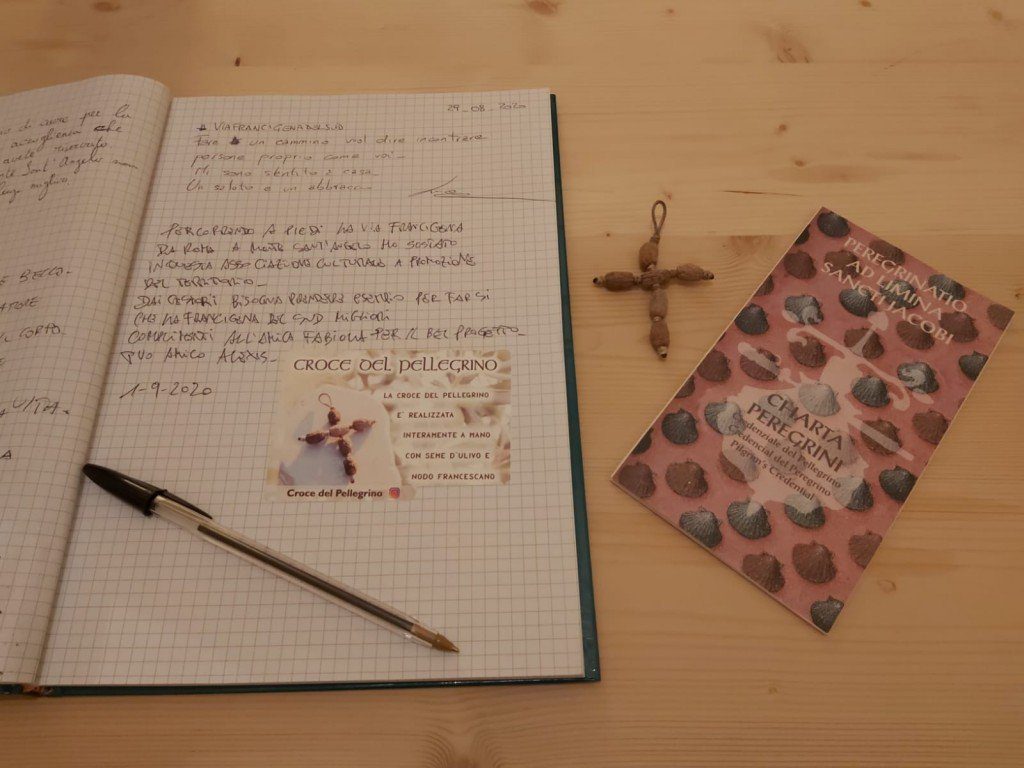 di cuore per la
accoglienza che
avete riservato
Sant'Angelo
E BECCO.
CORTO.
29_08_2020
# VIAFRANCIGENADELSUD
Fare un cammino vuol dire incontrare
persone proprio come voi_
Mi sono sentito a casa_
Un saluto e un abbraccio_
PERCORRENDO A PIEDI LA VIA FRANCIGENA
DA ROMA A MONTE SANT'ANGELO HO SOSTATO
IN QUESTA ASSOCIAZIONE CULTURALE A PROMOZIONE
DEL TERRITORIO_
DAI GESTORI BISOGNA PRENDERE ESEMPIO PER FAR SI
CHE LA FRANCIGENA DEL SUD MIGLIORI
COMPLIMENTI ALL'AMICA FABIOLA PER IL BEL PROGETTO_
TUO AMICO ALEXIS_
1-9-2020
CROCE DEL PELLEGRINO
LA CROCE DEL PELLEGRINO
E' REALIZZATA
INTERAMENTE A MANO
CON SEME D'ULIVO E
NODO FRANCESCANO
Croce del Pellegrino
PEREGRINATIO
AD LIMINA
SANCTI JACOBI
CHARTA
PEREGRINI
Credenziale del Pellegrino
Credencial del Peregrino
Pilgrim's Credential